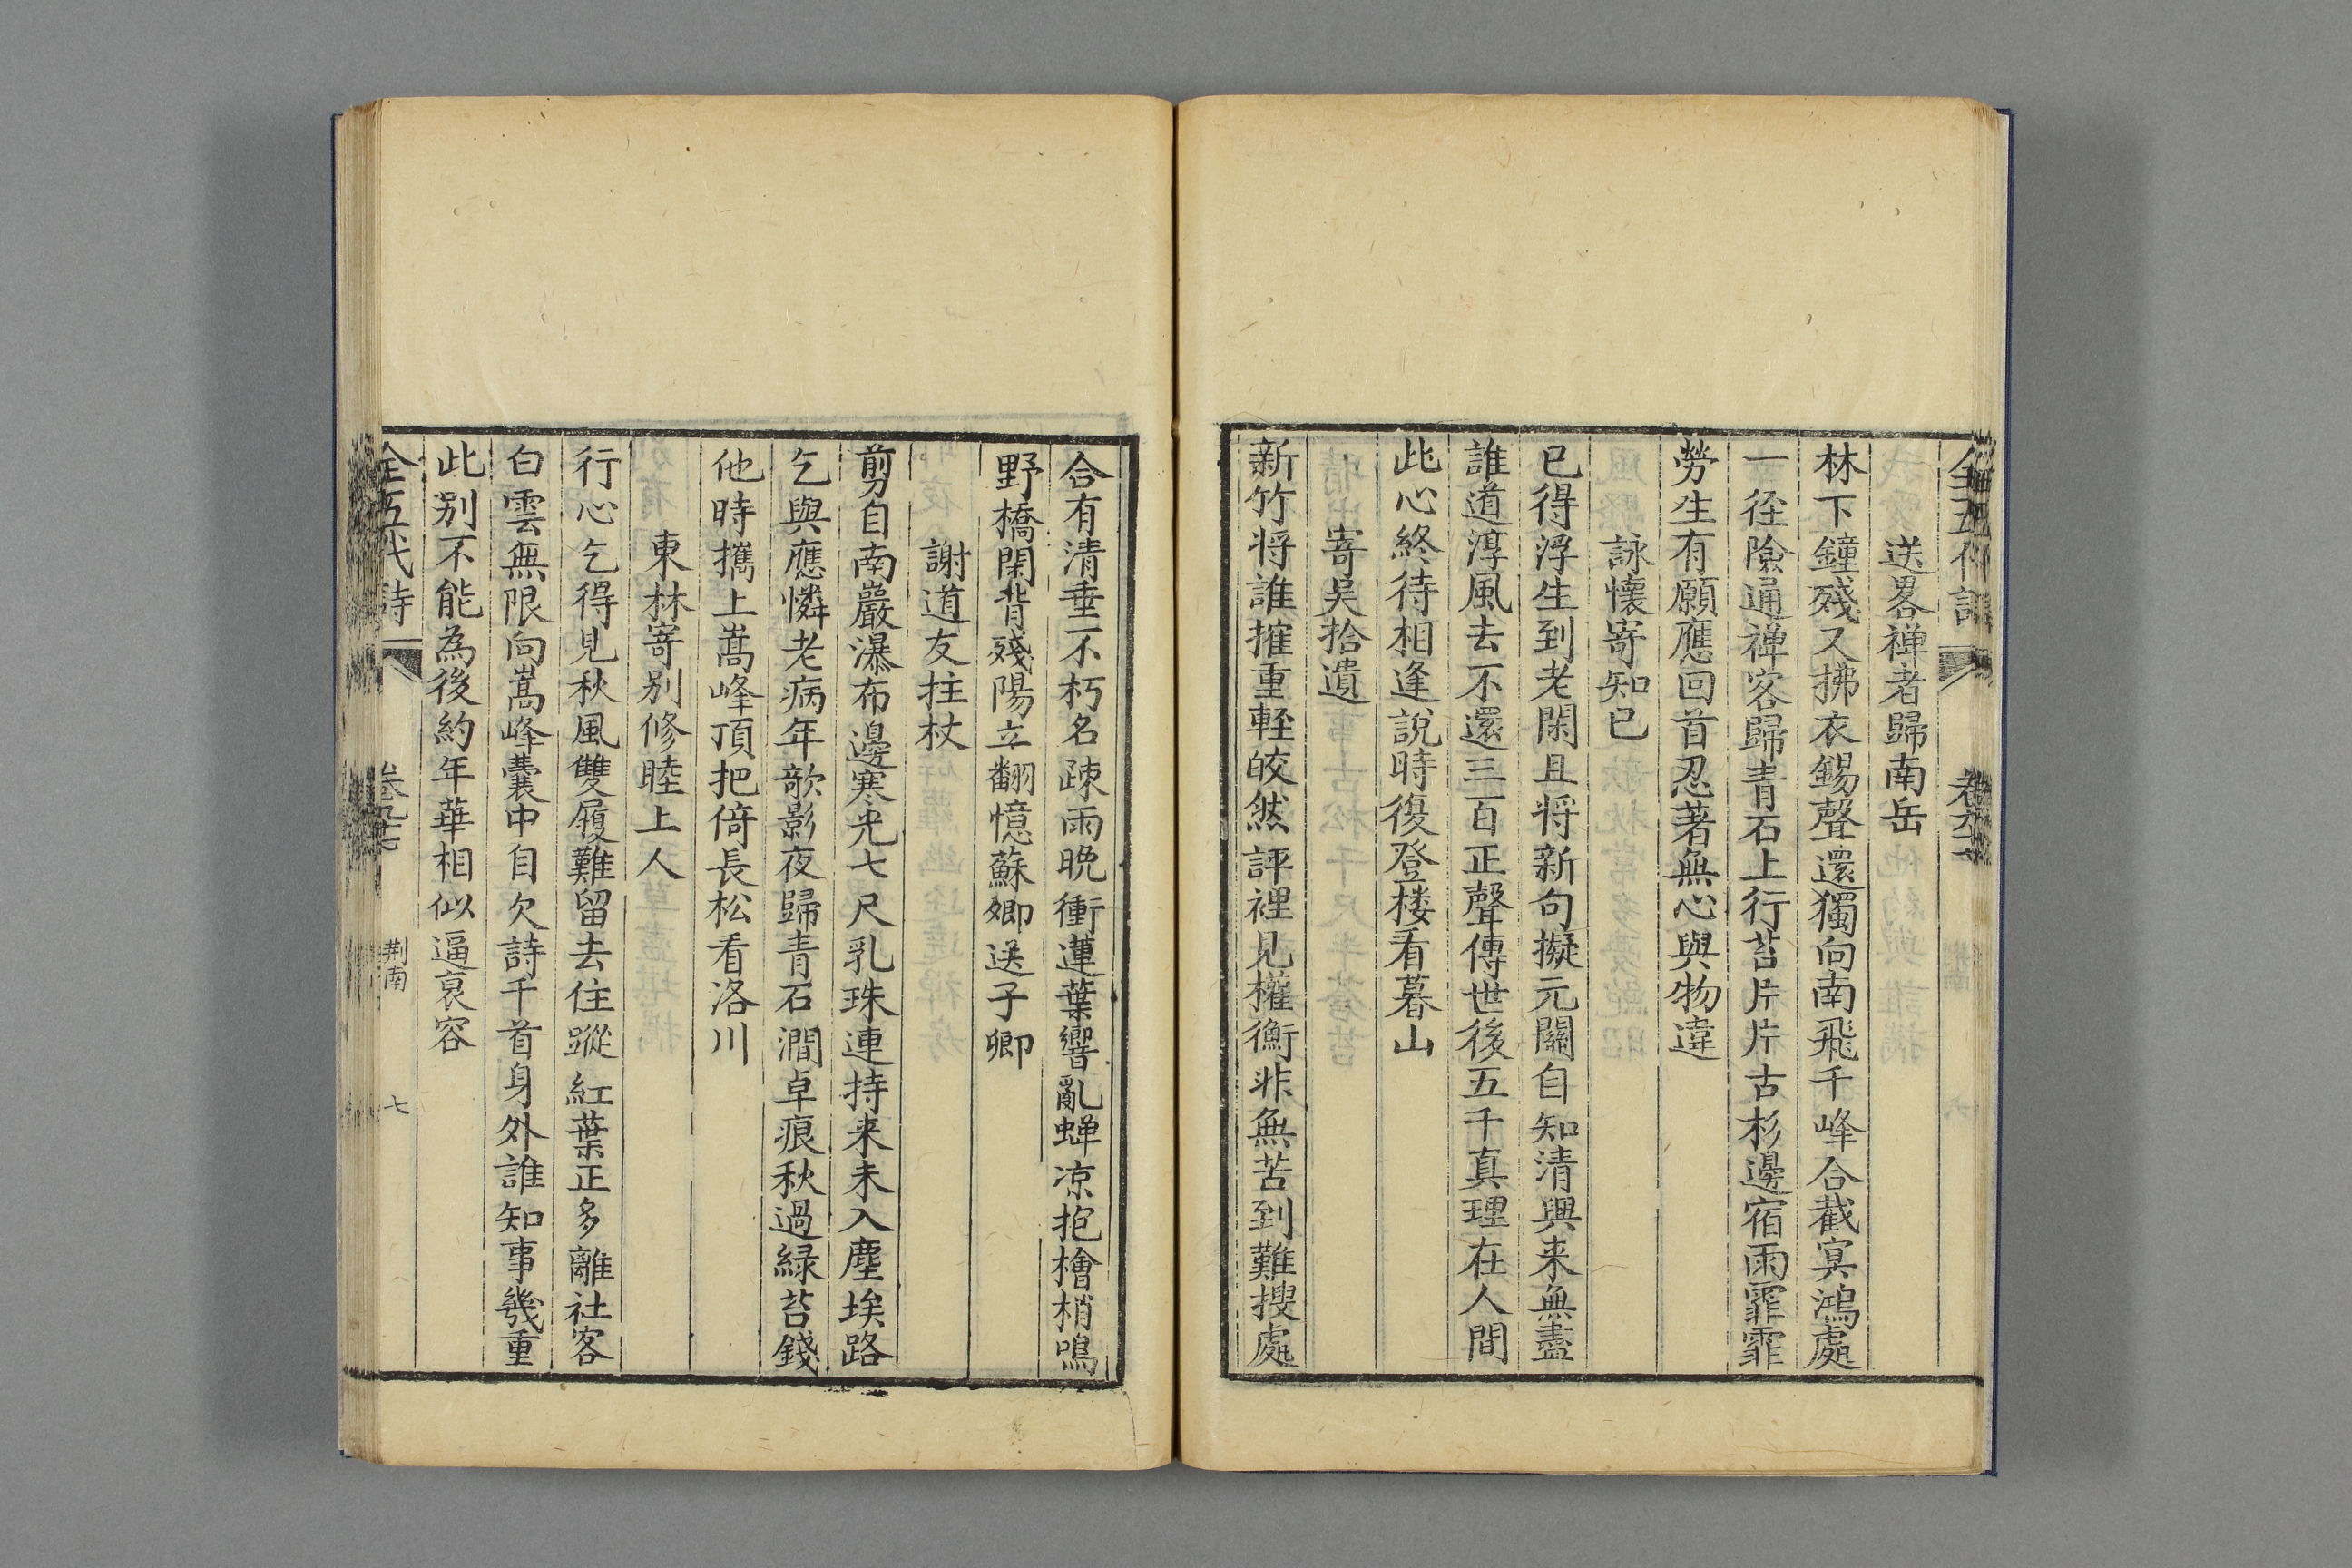 送畧禅者歸南岳
林下鐘殘又拂衣錫聲還獨向南飛千峰合截㝠鴻處
一径險通禅客歸青石上行苔片片古杉邊宿雨霏霏
勞生有願應回首忍著無心與物違
詠懷寄知已
已得浮生到老閑且将新句擬元關自知清興来無盡
誰道淳風去不還三百正聲傳世後五千真理在人間
此心終待相逢說時復登楼看暮山
寄吳拾遺
新竹将誰搉重軽皎然評裡見權衡非無苦到難搜處
合有清垂不朽名疎雨晩衝蓮葉響亂蝉凉抱檜梢鳴
野橋閑背殘陽立翻憶蘇卿送子卿
謝道友拄杖
剪自南巖瀑布邊寒光七尺乳珠連持来未入塵埃路
乞與應憐老病年欹影夜歸青石澗卓痕秋過緑苔錢
他時攜上嵩峰頂把倚長松看洛川
東林寄别修睦上人
行心乞得見秋風雙履難留去住蹤紅葉正多離社客
白雲無限向嵩峰囊中自欠詩千首身外誰知事㡬重
此别不能為後約年華相似逼衰容
全五代詩
荆南
七